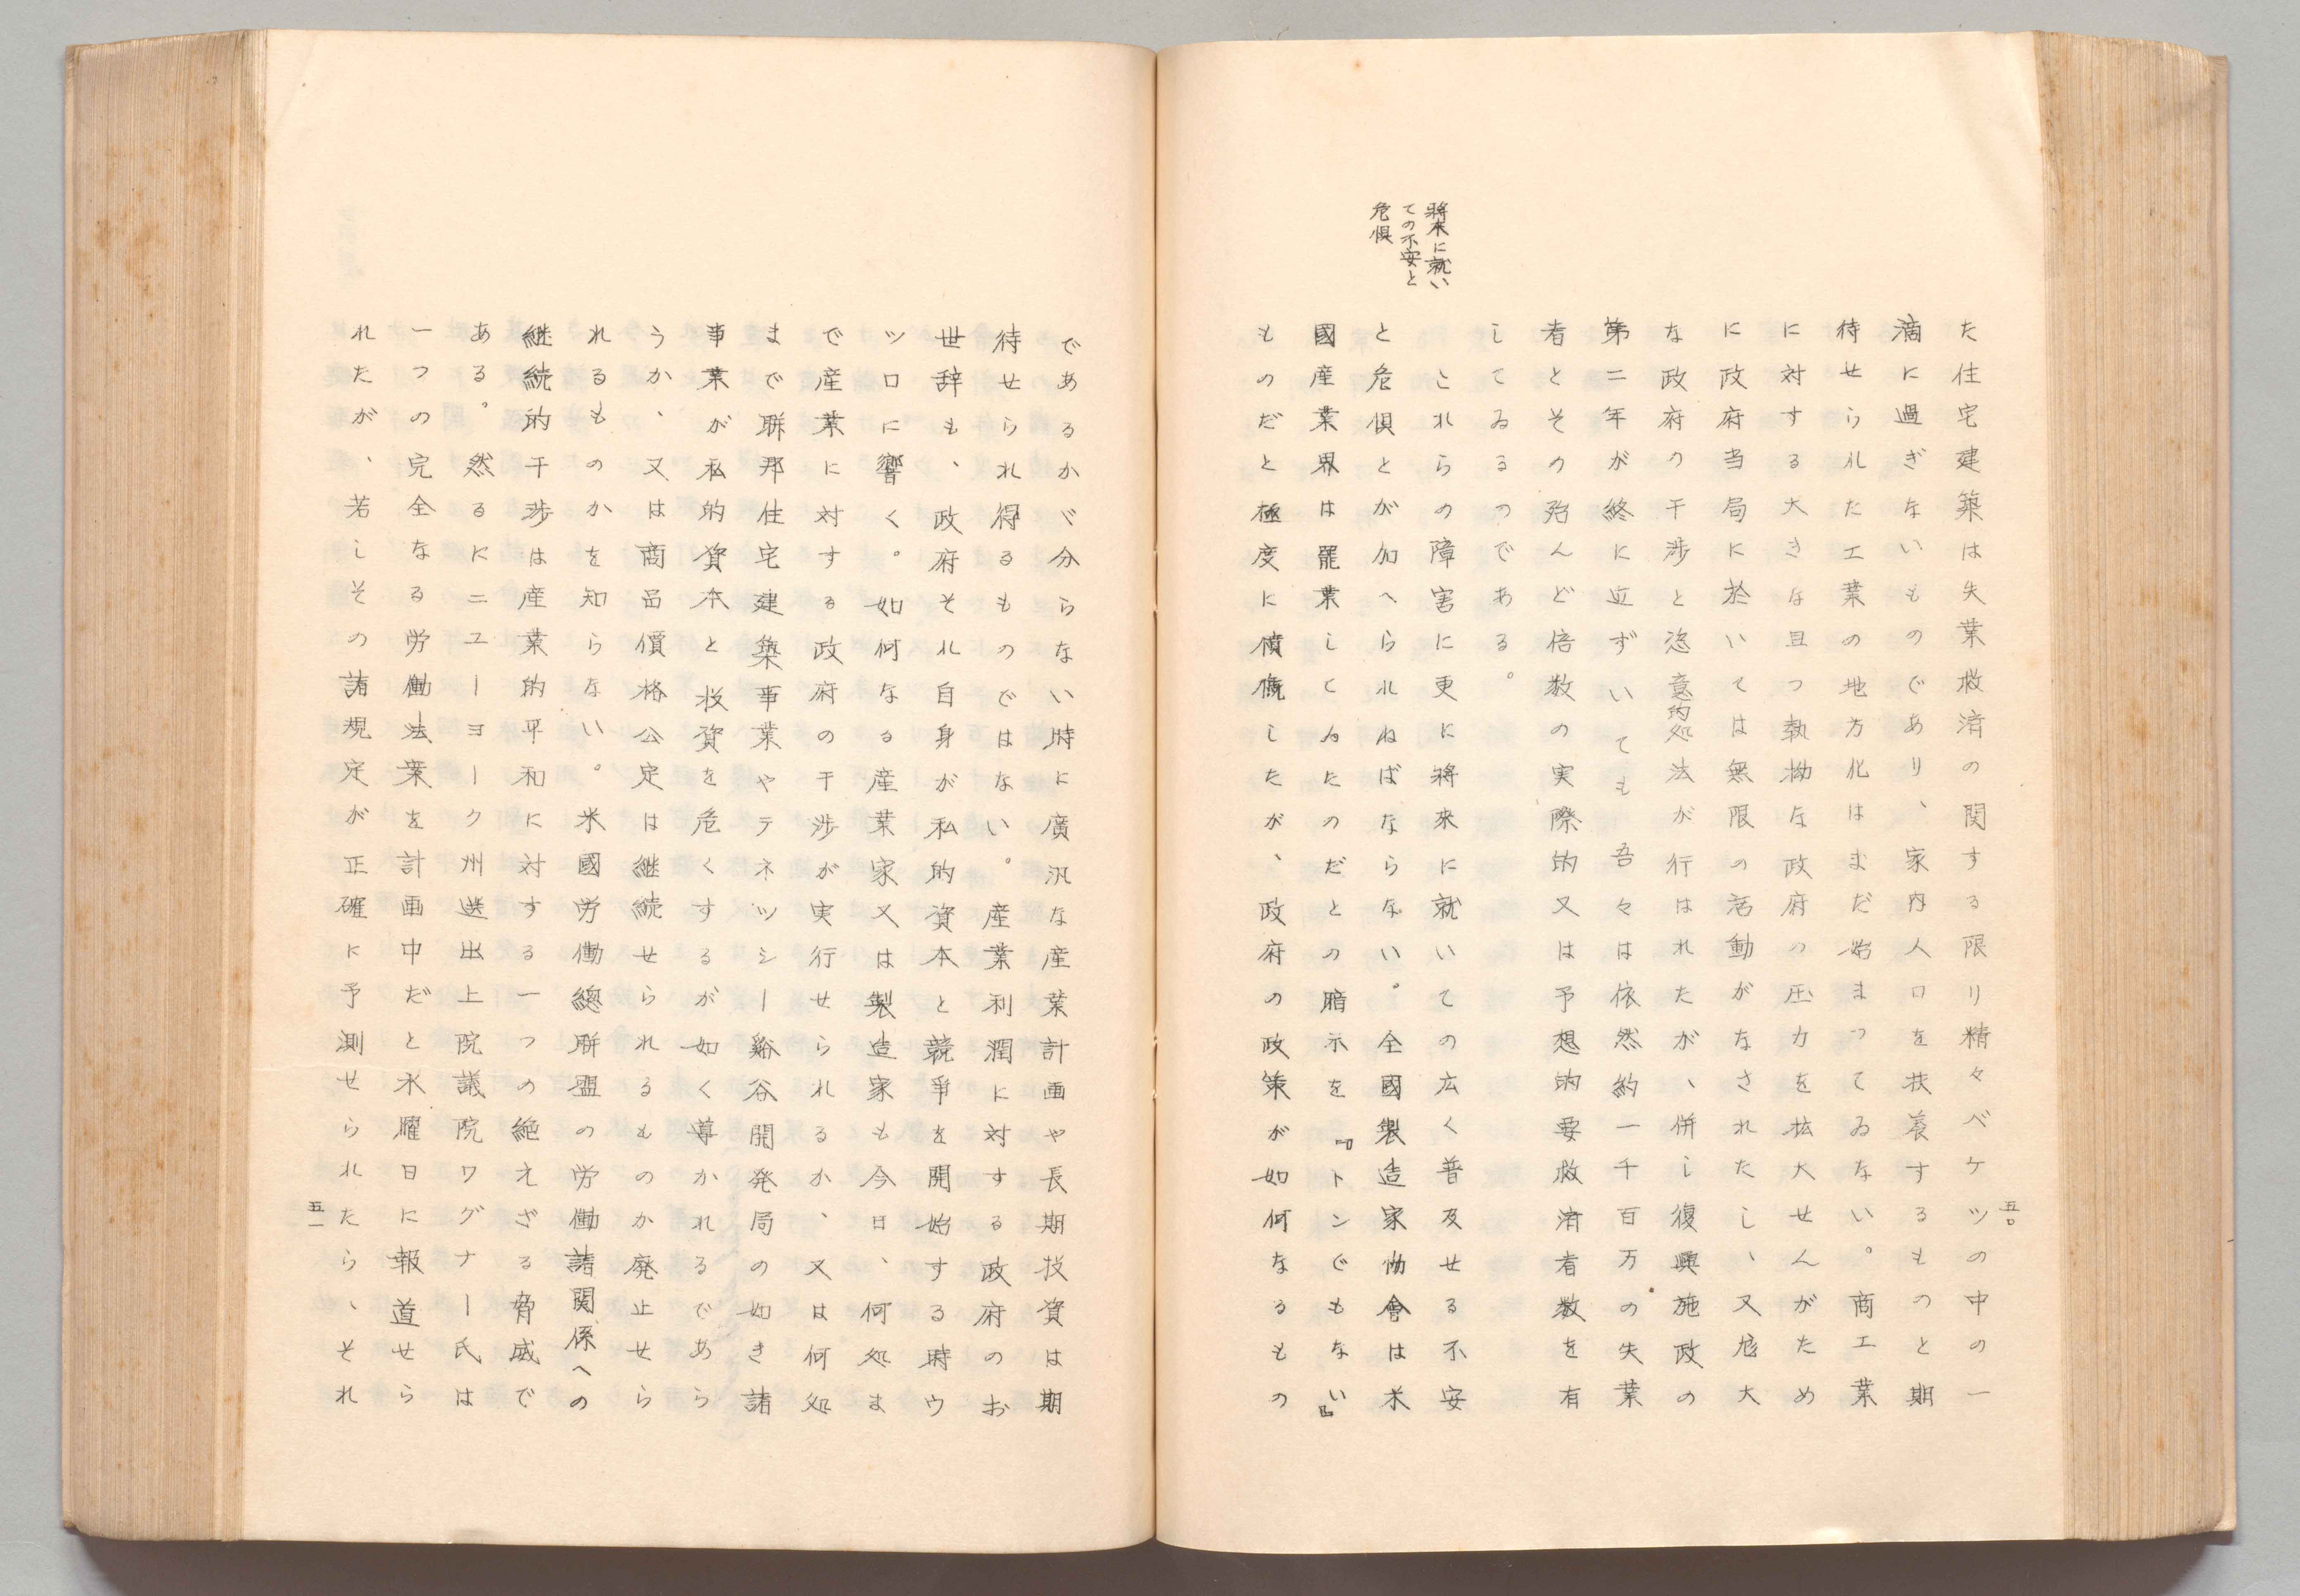 た住宅建築は失業救済の関する限リ精々ベケツの中の一
滴に過ぎないものであり、家内人口を扶養するものと期
待せられた工業の地方化はまだ始まつてゐない。商工業
に対する大きな且つ執拗な政府の圧力を拡大せんがため
に政府当局に於いては無限の活動がなされたし、又尨大
な政府の干渉と恣意的処法が行はれたが、併し復興施政の
第二年が終に近ずいても、吾々は依然約一千百万の失業
者とその殆んど倍数の実際的又は予想的要救済者数を有
してゐるのである。
将来に就い
ての不安と
危惧
これらの障害に更に將来に就いての広く普及せる不安
と危惧とが加へられねばならない。全國製造家協會は米
國産業界は罷業してゐたのだとの暗示を『トンでもない』
ものだと極度に憤慨したが、政府の政策が如何なるもの
五〇
であるかゞ分らない時に廣汎な産業計画や長期投資は期
待せられ得るものではない。産業利潤に対する政府のお
世辞も、政府それ自身が私的資本と競爭を開始する時ウ
ツロに響く。如何なる産業家又は製造家も今日、何処ま
で産業に対する政府の干渉が実行せられるか、又は何処
まで聯邦住宅建築事業やテネツシー谿谷開発局の如き諸
事業が私的資本と投資を危くするが如く導かれるであら
うか、又は商品價格公定は継続せられるものか廃止せら
れるものかを知らない。米國労働總聯盟の労働諸関係への
継続的干渉は産業的平和に対する一つの絶えざる脅威で
ある。然るにニユーヨーク州選出上院議院ワグナー氏は
一つの完全なる労働法案を計画中だと水曜日に報道せら
れたが、若しその諸規定が正確に予測せられたら、それ
五一